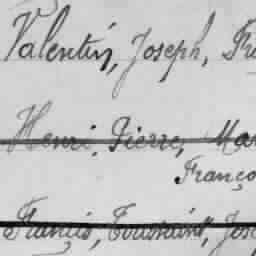 Valentin, Joseph, Fr
Henri, Pierre, Mar
Franço
Francis, Toussaint, Jos